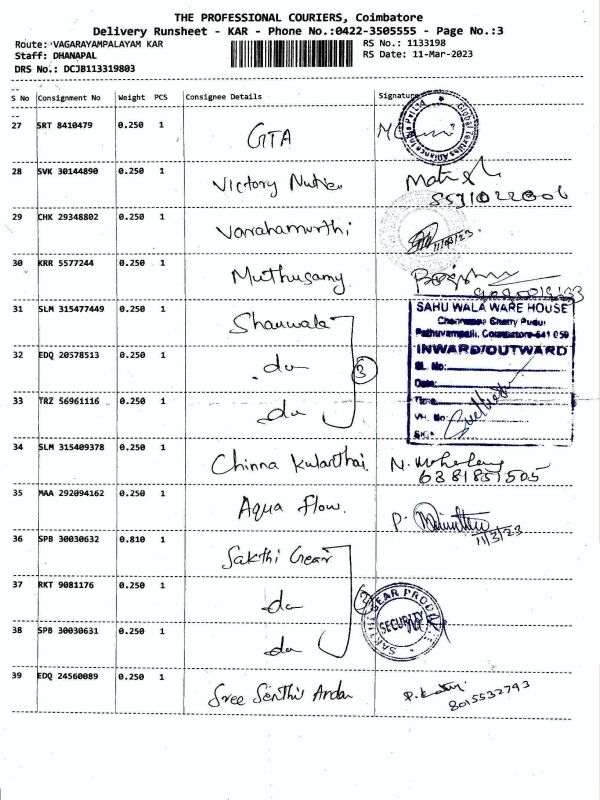 THE PROFESSIONAL COURIERS, Coimbatore
Delivery Runsheet - KAR - Phone No.:0422-3505555 - Page No.:3
Route: VAGARAYAMPALAYAM KAR
RS No.: 1133198
Staff: DHANAPAL
RS Date: 11-Mar-2023
DRS No.: DCJB113319803
S No Consignment No Weight PCS Consignee Details Signature
27 SRT 8410479 0.250 1 GTA
28 SVK 30144890 0.250 1 Victory
29 CHK 29348802 0.250 1 Varahamurthi
11/03/23
30 KRR 5577244 0.250 1 Muthusamy
31 SLM 315477449 0.250 1
SAHU WALA WARE HOUSE
Pathuvampalli, Coimbatore-641 059
INWARD/OUTWARD
SL. No:
Date:
Time
VH. No:
SIG:
32 EDQ 20578513 0.250 1 do
3
33 TRZ 56961116 0.250 1 do
34 SLM 315409378 0.250 1 Chinna Kulanthai
6381851505
35 MAA 292094162 0.250 1 Aqua flow.
P.
11/3/23
36 SPB 30030632 0.810 1 Sakthi Gear
37 RKT 9081176 0.250 1 do
3
SAKTHI GEAR PRODUCTS
SECURITY
38 SPB 30030631 0.250 1 do
39 EDQ 24560089 0.250 1 Sree Senthil Andar
8015532743